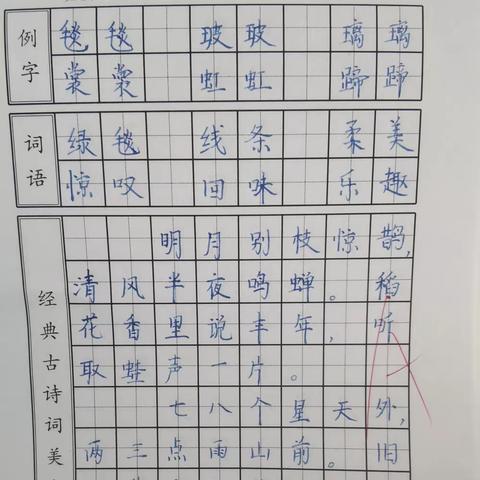 例字
毯 毯 玻 玻 璃 璃
裳 裳 虹 虹 蹄 蹄
词语
绿毯 线条 柔美
惊叹 回味 乐趣
经典古诗词美
明月别枝惊鹊,
清风半夜鸣蝉。稻
花香里说丰年,听
取蛙声一片。
七八个星天外,
两三点雨山前。旧